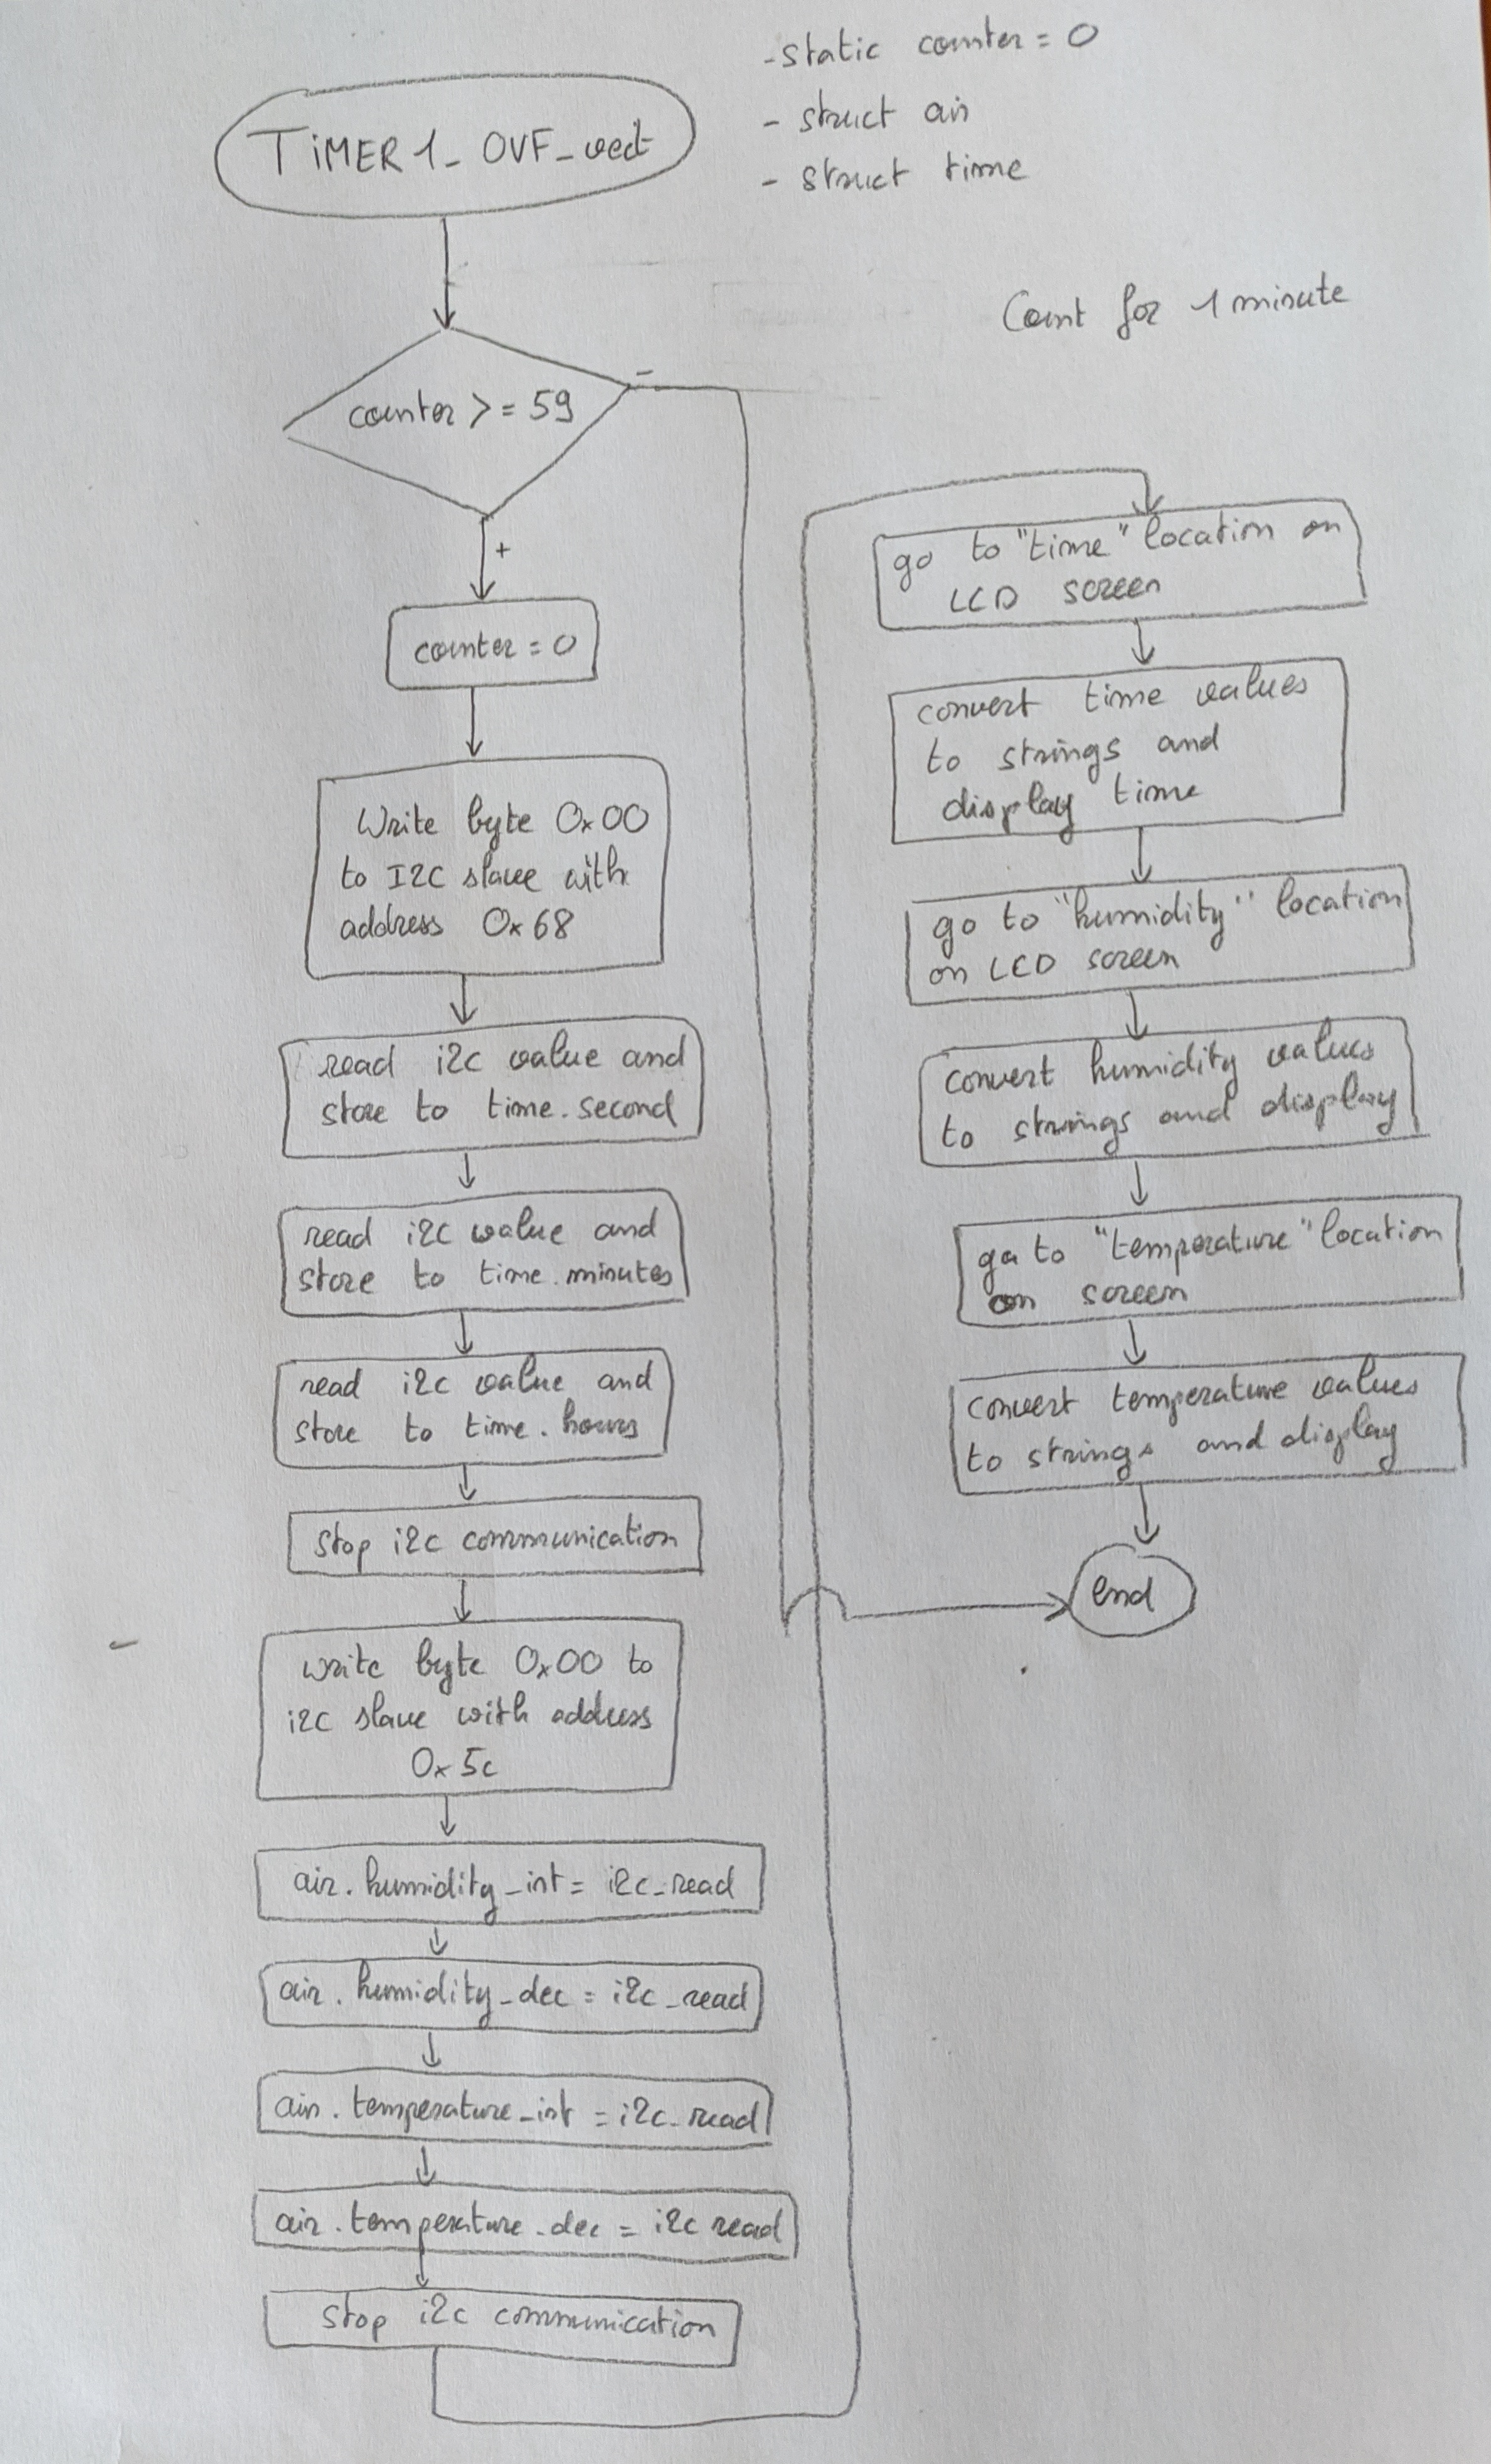 -static counter = 0
- struct air
- struct time
TiMER1_OVF_vect
Count for 1 minute
-
counter >= 59
+
counter = 0
Write byte 0x00
to I2C slave with
address 0x68
read i2c value and
store to time.second
read i2c value and
store to time.minutes
read i2c value and
store to time.hours
stop i2c communication
write byte 0x00 to
i2c slave with address
0x5c
air.humidity_int = i2c_read
air.humidity_dec = i2c_read
air.temperature_int = i2c_read
air.temperature_dec = i2c read
stop i2c communication
go to "time" location on
LCD screen
convert time values
to strings and
display time
go to "humidity" location
on LCD screen
convert humidity values
to strings and display
go to "temperature" location
on screen
convert temperature values
to strings and display
end